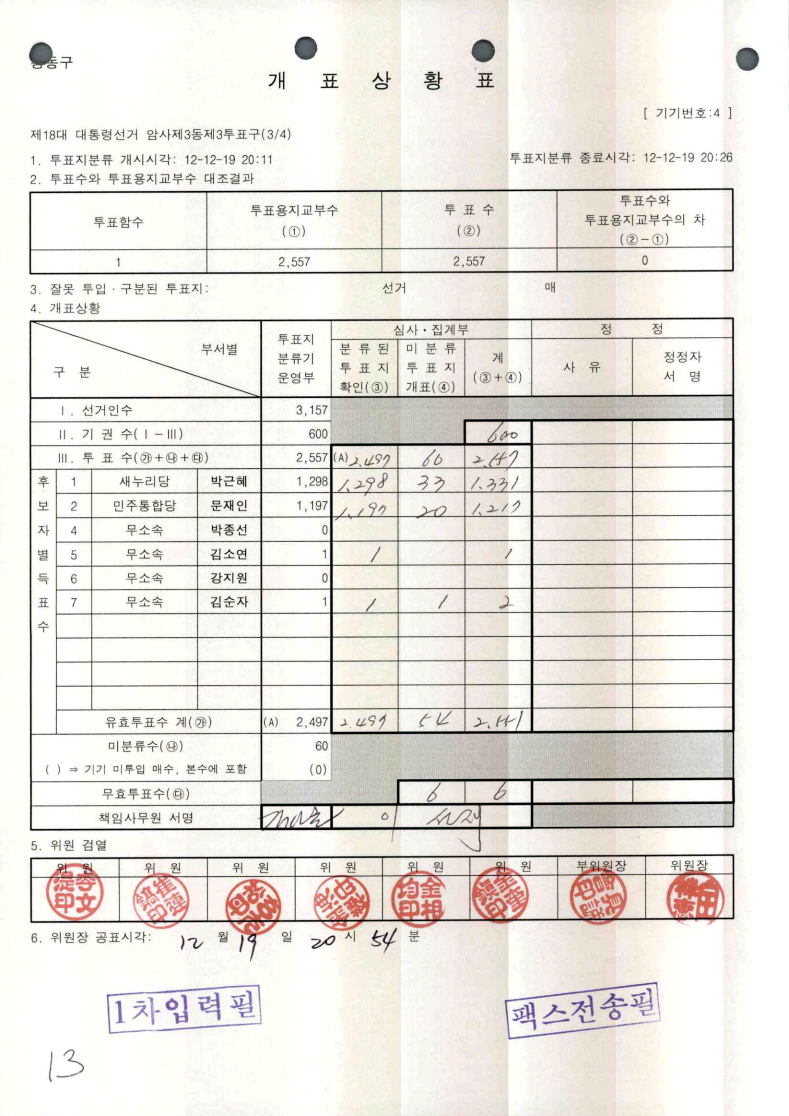 동구
개 표 상 황 표
[ 기기번호:4 ]
제18대 대통령선거 암사제3동제3투표구(3/4)
1. 투표지분류 개시시각: 12-12-19 20:11 투표지분류 종료시각: 12-12-19 20:26
2. 투표수와 투표용지교부수 대조결과
투표함수 투표용지교부수 (①) 투 표 수 (②) 투표수와 투표용지교부수의 차 (②-①)
1 2,557 2,557 0
3. 잘못 투입ㆍ구분된 투표지: 선거 매
4. 개표상황
구 분 부서별 투표지 분류기 운영부 심사ㆍ집계부 정 정
분류된 투표지 확인(③) 미분류 투표지 개표(④) 계 (③+④) 사 유 정정자 서 명
Ⅰ. 선거인수 3,157
Ⅱ. 기 권 수(Ⅰ-Ⅲ) 600 600
Ⅲ. 투 표 수(㉮+㉯+㉰) 2,557 (A) 2,497 60 2,557
후보자별득표수
1 새누리당 박근혜 1,298 1,298 33 1,331
2 민주통합당 문재인 1,197 1,197 20 1,217
4 무소속 박종선 0
5 무소속 김소연 1 1 1
6 무소속 강지원 0
7 무소속 김순자 1 1 1 2
유효투표수 계(㉮) (A) 2,497 2,497 54 2,551
미분류수(㉯) 60
( ) ⇒ 기기 미투입 매수, 본수에 포함 (0)
무효투표수(㉰) 6 6
책임사무원 서명
5. 위원 검열
위 원 위 원 위 원 위 원 위 원 위 원 부위원장 위원장
6. 위원장 공표시각: 12 월 19 일 20 시 54 분
1차입력필
팩스전송필
13